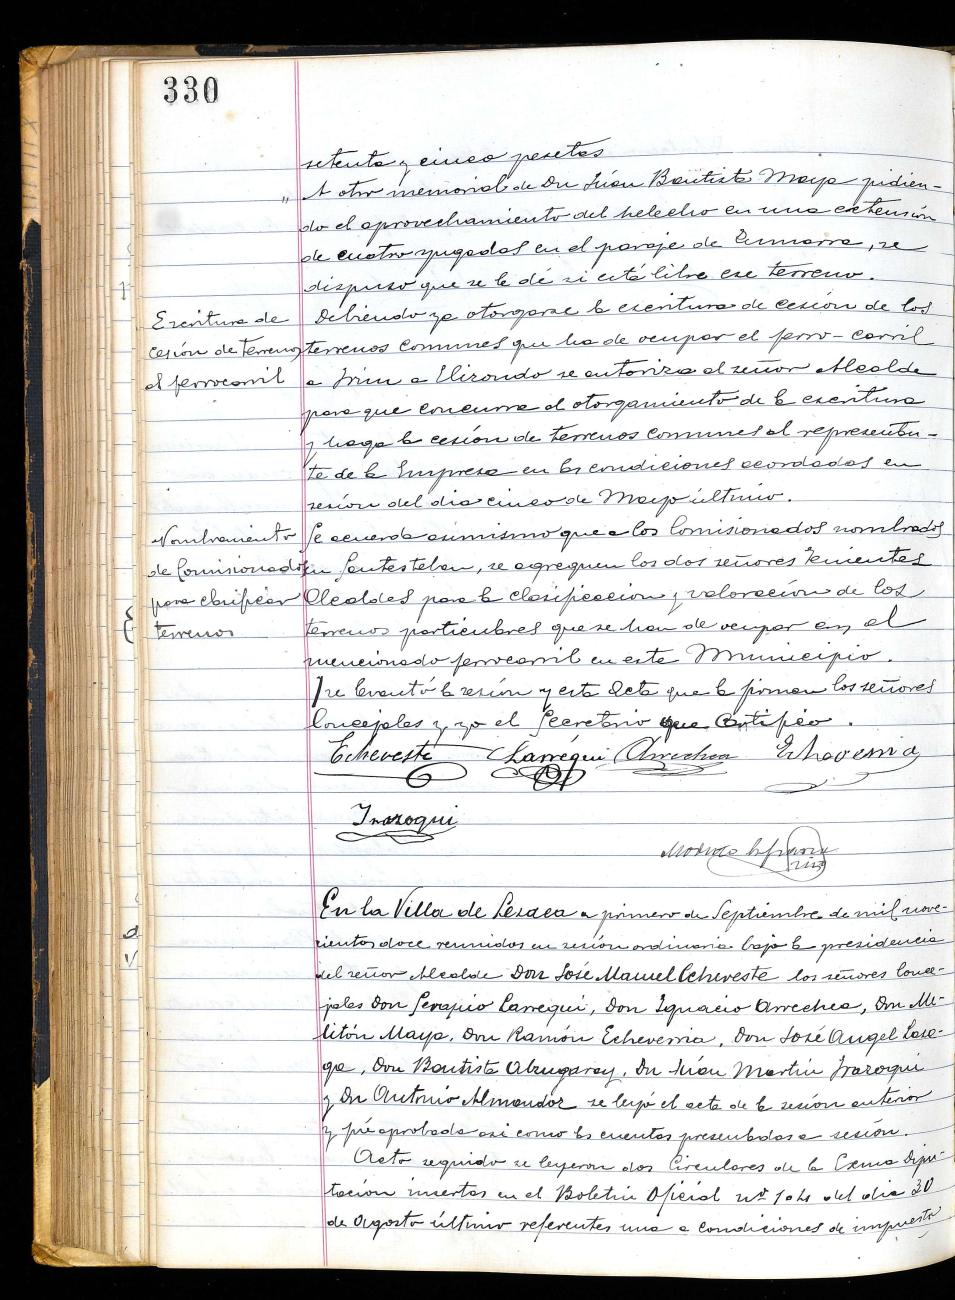 330
setenta y cinco pesetas
" A otro memorial de Dn Juan Bautista Maya pidien-
do el aprovechamiento del helecho en una extensión
de cuatro yugadas en el paraje de se
dispuso que se le dé si está libre ese terreno.
Escritura de
cesión de terrenos
al ferrocarril
Debiendo ya otorgarse la escritura de cesión de los
terrenos comunes que ha de ocupar el ferro-carril
a Irún a Elizondo se autoriza al señor Alcalde
para que concurra al otorgamiento de la escritura
y haga la cesión de terrenos comunes al representan-
te de la Empresa en las condiciones acordadas en
sesión del dia cinco de Mayo último.
Nombramiento
de Comisionados
para clasificar
terrenos
Se acuerda asimismo que a los Comisionados nombrados
en Santesteban, se agreguen los dos señores Tenientes
Alcaldes para la clasificacion y valoración de los
terrenos particulares que se han de ocupar en el
mencionado ferrocarril en este Municipio.
Y se levantó la sesión y esta Acta que la firman los señores
Concejales y yo el Secretario que Certifico.
Echeveste Larregui Arrechea Echeverria
Irazoqui
Modesto
En la Villa de Lesaca a primero de Septiembre de mil nove-
cientos doce reunidos en sesión ordinaria bajo la presidencia
del señor Alcalde Don José Manuel Echeveste los señores Conce-
jales Don Serapio Larregui, Don Ignacio Arrechea, Don Me-
litón Maya, Don Ramón Echeverria, Don José Angel Lasa-
ga, Don Bautista Alzugaray, Dn Juan Martin Irazoqui
y Dn Antonio Almandoz se leyó el acta de la sesión anterior
y fué aprobada asi como las cuentas presentadas a sesión.
Acto seguido se leyeron dos Circulares de la Exma Dipu-
tación insertas en el Boletin Oficial nº 104 del dia 30
de Agosto último referentes una a condiciones de impuesto